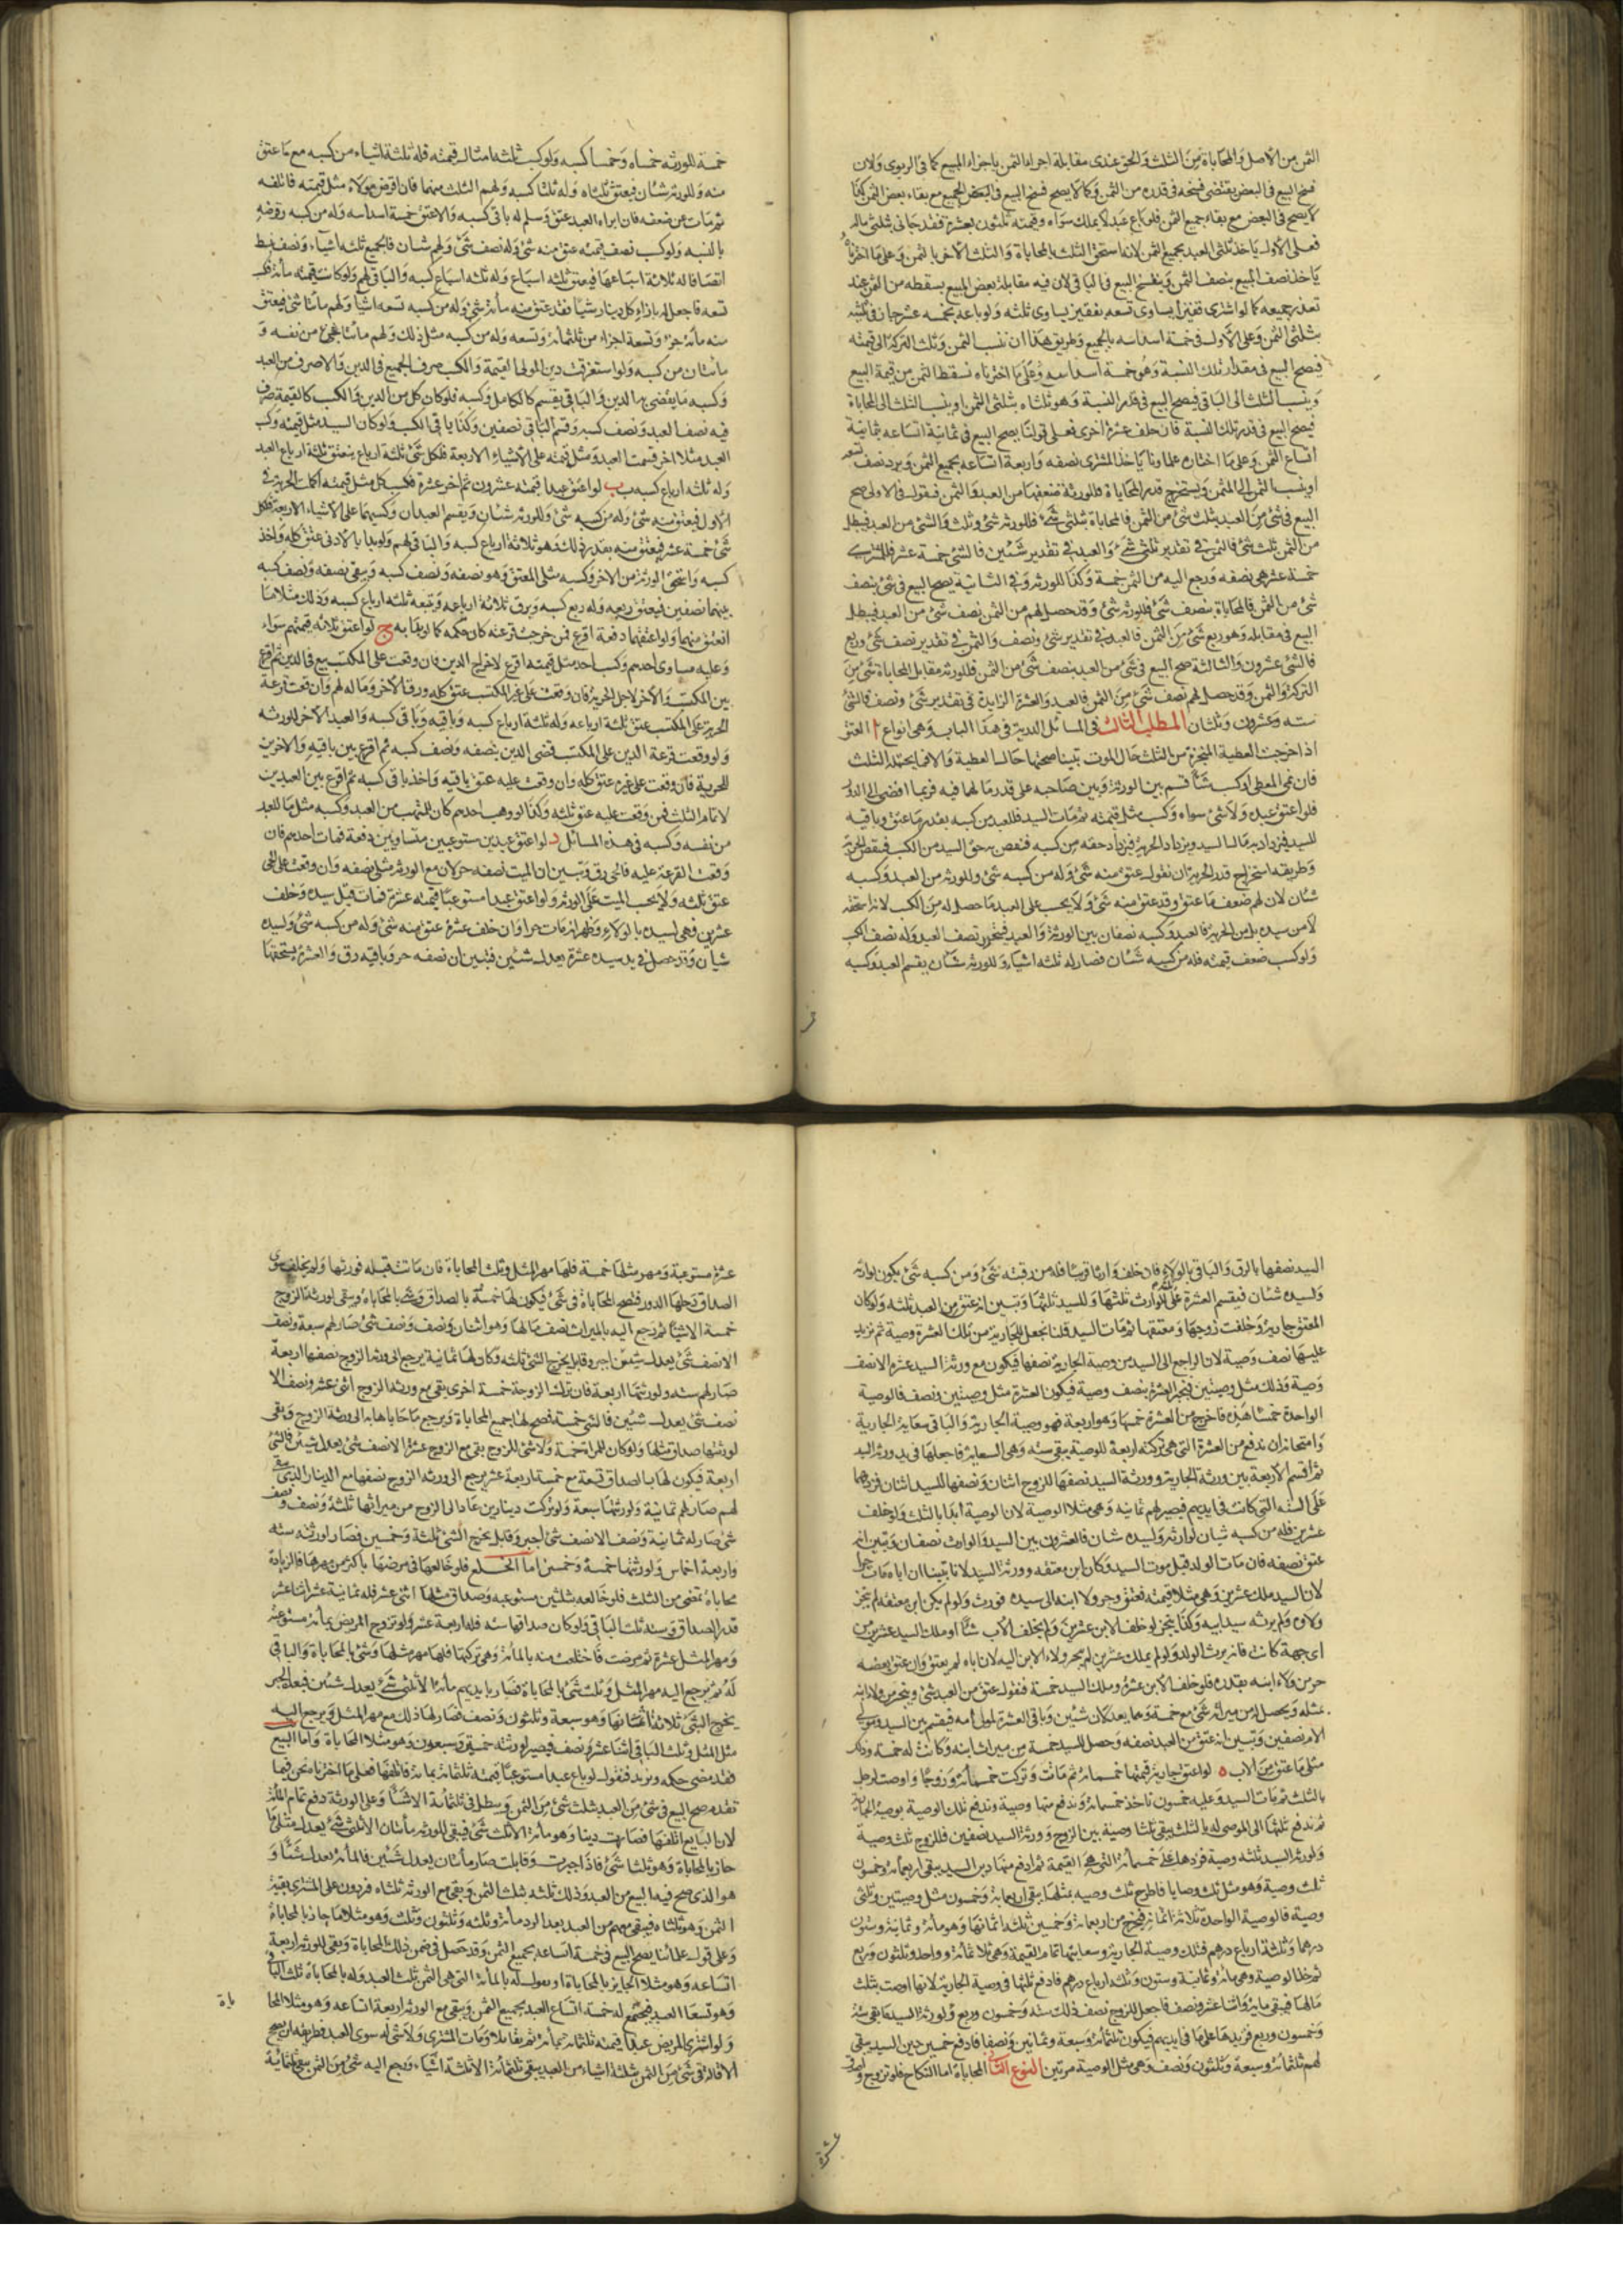 الثمن من الأصل والمحاباة من الثلث والحق عندى مقابلة اجزاء الثمن باجزاء المبيع كما فى الربوى ولان
فسخ البيع فى البعض يقتضى فسخه فى قدره من الثمن وكما لا يصح فسخ البيع فى البعض الجميع مع بقاء بعض الثمن كذا
لا يصح فى البعض مع بقاء جميع الثمن فلو باع عبدا لا يملك سواه وقيمته ثلثون بعشرة فقد حابى بثلثى ماله
فعلى الأول ياخذ ثلثى العبد بجميع الثمن لانه استحق الثلث بالمحاباة والثلث الآخر بالثمن وعلى ما اخترناه
ياخذ نصف المبيع بنصف الثمن وينفسخ البيع فى الباقى لان فيه مقابلة بعض المبيع بسقطه من الثمن عند
تعذر جميعه كما لو اشترى قفيزا يساوى تسعه بقفيز يساوى ثلثه ولو باعه بخمسه عشر جاز فى ثلثيه
بثلثى الثمن وعلى الأول فى خمسة اسداسه بالجميع وطريق هذا ان ننسب الثمن وثلث التركة الى قيمته
فيصح البيع فى مقدار تلك النسبة وهو خمسة اسداسه وعلى ما اخترناه نسقط الثمن من قيمة المبيع
وينسب الثلث الى الباقى فيصح البيع فى قدر النسبة وهو ثلثاه بثلثى الثمن او ينسب الثلث الى المحاباة
فيصح البيع فى قدر تلك النسبة فان خلف عشرة اخرى فعلى قولنا يصح البيع فى ثمانية اتساعه بثمانية
اتساع الثمن وعلى ما اختاره علماونا ياخذ المشترى نصفه واربعة اتساعه بجميع الثمن ويرد نصف تسعه
او ينسب الثمن الى المثمن ويستخرج قدر المحاباة فللورثة ضعفها من العبد والثمن فنقول فى الاولى صح
البيع فى شئ من العبد بثلث شئ من الثمن فالمحاباة بثلثى شئ فللورثه شئ وثلث والشئ من العبد فيبطل
من الثمن ثلث شئ فالثمن فى تقدير ثلثى شئ والعبد فى تقدير شيئين فالشئ خمسة عشر فللمشترى
خمسة عشر هى نصفه ورجع اليه من الثمن خمسة وكذا للورثه وفى الثانية يصح البيع فى شئ بنصف
شئ من الثمن فالمحاباة بنصف شئ فللورثه شئ وقد حصل لهم من الثمن نصف شئ من العبد فيبطل
البيع فى مقابله وهو ربع شئ من الثمن فالعبد فى تقدير شئ ونصف والثمن فى تقدير نصف شئ وربع
فالشئ عشرون والثالثة صح البيع فى شئ من العبد بنصف شئ من الثمن فللورثه مقابل المحاباة شئ من
التركة والثمن وقد حصل لهم نصف شئ من الثمن فالعبد والعشرة الزايدة فى تقدير شئ ونصف فالشئ
سته وعشرون وثلثان المطلب الثالث فى المسائل الدورية فى هذا الباب وهى انواع ا العتق
اذا خرجت العطية المنجزة من الثلث حال الموت تبينا صحتها حالة العطية والا فما يحتمله الثلث
فان نمى المعطى او كسب شيئا قسم بين الورثة وبين صاحبه على قدر ما لهما فيه فربما افضى الى الدور
فلو اعتق عبده ولا شئ سواه وكسب مثل قيمته ثم مات السيد فللعبد من كسبه بقدر ما عتق وباقيه
للسيد فيزداد به مال السيد ويزداد الحرية فيزداد حقه من كسبه فنقص به حق السيد من الكسب فينقص الحرية
وطريقه استخراج قدر الحرية ان نقول عتق منه شئ وله من كسبه شئ وللورثه من العبد وكسبه
شيئان لان لهم ضعف ما عتق وقد عتق منه شئ ولا يحسب على العبد ما حصل له من الكسب لانه استحقه
لا من سيده بل من الحرية فالعبد وكسبه نصفان بين الورثة والعبد فيتحرر نصف العبد وله نصف الكسب
ولو كسب ضعف قيمته فله من كسبه شيئان فصار له ثلثه اشياء وللورثه شيئان يقسم العبد وكسبه
خمسة للورثه خمساه وخمسا كسبه ولو كسب ثلثه امثال قيمته فله ثلثة اشياء من كسبه مع ما عتق
منه وللورثه شيئان فيعتق ثلثاه وله ثلثا كسبه ولهم الثلث منهما فان اقرض مولاه مثل قيمته فاتلفه
ثم مات عن ضعفه فان ابراه العبد عتق وسلم له باقى كسبه والا عتق خمسة اسداسه وله من كسبه وقرضه
بالنسبه ولو كسب نصف قيمته عتق منه شئ وله نصف شئ ولهم شيئان فالجميع ثلثه اشياء ونصف نبسط
انصافا له ثلاثة اسباعها فيعتق ثلثه اسباع وله ثلثه اسباع كسبه والباقى لهم ولو كانت قيمته مائة فكسب
تسعه فاجعل له بازاء كل دينار شيئا فقد عتق منه مائة شئ وله من كسبه تسعه اشياء ولهم مائتا شئ فيعتق
منه مائة جزء وتسعة اجزاء من ثلثمائة وتسعه وله من كسبه مثل ذلك ولهم مائتا جزء من نفسه و
مائتان من كسبه ولو استغرقت دين المولى القيمة والكسب صرف الجميع فى الدين والا صرف من العبد
وكسبه ما يقضى به الدين والباقى يقسم كالكامل وكسبه فلو كان كل من الدين والكسب كالقيمة صرف
فيه نصف العبد ونصف كسبه وقسم الباقى نصفين وكذا باقى الكسب ولو كان للسيد مثل قيمته وكسب
العبد مثلا اخر قسمت العبد ومثل قيمته على الاشياء الاربعة فلكل شئ ثلثة ارباع يعتق ثلثة ارباع العبد
وله ثلثه ارباع كسبه ب لو اعتق عبدا قيمته عشرون ثم اخر عشرة فكسب كل مثل قيمته اكملت الحرية فى
الأول فيعتق منه شئ وله من كسبه شئ وللورثه شيئان ويقسم العبدان وكسبهما على الاشياء الاربعة فلكل
شئ خمسة عشر فيعتق منه بقدر ذلك وهو ثلاثة ارباعه وله ثلاثة ارباع كسبه والباقى لهم ولو بدا بالادنى عتق كله واخذ
كسبه واستحق الورثة من الآخر وكسبه مثلى المعتق وهو نصفه ونصف كسبه وبقى نصفه ونصف كسبه
بينهما نصفين فيعتق ربعه وله ربع كسبه ويرق ثلاثة ارباعه ويتبعه ثلثه ارباع كسبه وذلك مثلا ما
انعتق منهما ولو اعتقهما دفعة اقرع فمن خرجت قرعته كان حكمه كما لو بدا به ج لو اعتق ثلاثه قيمتهم سواء
وعليه مساوى احدهم وكسب احدهم مثل قيمته اقرع لاخراج الدين فان وقعت على المكتسب بيع فى الدين ثم اقرع
بين المكتسب والآخر لاجل الحرية فان وقعت على غير المكتسب عتق كله ورق الآخر وماله لهم وان وقعت قرعة
الحرية على المكتسب عتق ثلثة ارباعه وله ثلثة ارباع كسبه وباقيه وباقى كسبه والعبد الآخر للورثه
ولو وقعت قرعة الدين على المكتسب قضى الدين بنصفه ونصف كسبه ثم اقرع بين باقيه والاخرين
للحرية فان وقعت على غيره عتق كله وان وقعت عليه عتق باقيه واخذ باقى كسبه ثم اقرع بين العبدين
لاتمام الثلث فمن وقعت عليه عتق ثلثه وكذا لو وهب احدهم كان للمتهب من العبد وكسبه مثل ما للعبد
من نفسه وكسبه فى هذه المسائل د لو اعتق عبدين مستوعبين متساويين دفعة فمات احدهم فان
وقعت القرعة عليه فالحى رق وتبين ان الميت نصفه حر لان مع الورثه مثلى نصفه وان وقعت على الحى
عتق ثلثه ولا يحسب الميت على الورثه ولو اعتق عبدا مستوعبا قيمته عشرة فمات قبل سيده وخلف
عشرين فهى لسيده بالولاء وظهر انه مات حرا وان خلف عشرة عتق منه شئ وله من كسبه شئ ولسيده
شيئان وقد حصل فى يد سيده عشرة يعدل شيئين فتبين ان نصفه حر وباقيه رق والعشرة يستحقها
السيد نصفها بالرق والباقى بالولاء فان خلف وارثا قريبا فله من رقبته شئ ومن كسبه شئ يكون لوارثه
ولسيده شيئان فيقسم العشرة على للوارث ثلثها وللسيد ثلثها وتبين انه عتق من العبد ثلثه ولو كان
المعتق جارية وخلفت زوجها ومعتقها ثم مات السيد قلنا نجعل للجارية من تلك العشرة وصية ثم نزيد
عليها نصف وصية لان الراجع الى السيد من وصية الجارية نصفها فيكون مع ورثة السيد عشرة الا نصف
وصية وذلك مثل وصيتين فنجبر العشرة بنصف وصية فيكون العشرة مثل وصيتين ونصف فالوصية
الواحدة خمسا هذه فاخرج من العشرة خمسها وهو اربعة فهو وصية الجارية والباقى سعاية الجارية
وامتحانه ان ندفع من العشرة التى هى تركته اربعة للوصية يبقى سته وهى السعاية فاجعلها فى يد ورثة السيد
ثم اقسم الأربعة بين ورثة الجارية وورثة السيد نصفها للزوج اثنان ونصفها للسيد اثنان فزدهما
على السته التى كانت فى ايديهم فيصير لهم ثمانيه وهى مثلا الوصية لان الوصية ابدا بالثلث ولو خلف
عشرين فله من كسبه شيئان لوارثه ولسيده شيئان فالعشرون بين السيد والوارث نصفان وتبين انه
عتق نصفه فان مات الولد قبل موت السيد وكان ابن معتقه وورثه السيد لانا تبينا ان اباه مات حرا
لان السيد ملك عشرين وهى مثلا قيمته فعتق وجر ولاء ابنه الى سيده فورث ولو لم يكن ابن معتقه لم ينجر
ولاؤه ولم يرثه سيد ابيه وكذا ينجر لو خلف الابن عشرين ولم يخلف الأب شيئا او ملك السيد عشرين من
اى جهة كانت فانه يرث الولد ولو لم يملك عشرين لم ينجر ولاء الابن اليه لان اباه لم يعتق وان عتق بعضه
جر من ولاء ابنه بقدره فلو خلف الابن عشرة وملك السيد خمسة فنقول عتق من العبد شئ وينجر من ولاء ابنه
مثله ويحصل له من ميراثه شئ مع خمسة وهما يعدلان شيئين وباقى العشرة لمولى امه فيقسم بين السيد ومولى
الام نصفين وتبين انه عتق من العبد نصفه وحصل للسيد خمسة من ميراث ابنه وكانت له خمسة وذلك
مثلى ما عتق من الاب ه لو اعتق جارية قيمتها خمسمائة ثم ماتت وتركت خمسمائة وزوجا واوصت لرجل
بالثلث ثم مات السيد وعليه خمسون ناخذ خمسمائة وندفع منها وصية وندفع تلك الوصية بوصية الجارية
ثم ندفع ثلثها الى الموصى له بالثلث يبقى ثلثا وصية بين الزوج وورثة السيد نصفين فللزوج ثلث وصية
ولورثة السيد ثلثه وصية فزدها على خمسمائة التى هى القيمة ثم ادفع منها دين السيد يبقى اربعمائة وخمسون
ثلث وصية وهو مثل ثلث وصايا فاطرح ثلث وصيه بمثلها يبقى اربعمائة وخمسون مثل وصيتين وثلثى
وصية فالوصية الواحدة ثلاثة اثمانه فنخرج من اربعمائة وخمسين ثلثه اثمانها وهو مائة وثمانية وستون
درهما وثلثة ارباع درهم فتلك وصية الجارية وسعايتها تمام القيمة وهى ثلاثمائة وواحد وثلثون وربع
ثم خذ الوصية وهى مائة وثمانية وستون وثلثه ارباع درهم فادفع ثلثها فى وصية الجارية لانها اوصت بثلث
مالها فيبقى مايه واثنا عشر ونصف فاجعل للزوج نصف ذلك سته وخمسون وربع ولورثة السيد ما بقى ستة
وخمسون وربع فزيدها على ما فى ايديهم فيكون ثلثمائة وسبعة وثمانين ونصفا فادفع خمسين دين السيد يبقى
لهم ثلثمائة وسبعة وثلثون ونصف وهى مثل الوصية مرتين النوع الثانى المحاباة اما النكاح فلو تزوج
عشرة
عشرة مستوعبة ومهر مثلها خمسة فلها مهر المثل وثلث المحاباة فان ماتت قبله فورثها ولم يخلف سوى
الصداق دخلها الدور فتصح المحاباة فى شئ فيكون لها خمسة بالصداق وشئ بالمحاباة ويبقى لورثة الزوج
خمسة الا شيئا ثم رجع اليه بالميراث نصف مالها وهو اثنان ونصف ونصف شئ صار لهم سبعة ونصف
الا نصف شئ يعدل شيئين اجبر وقابل يخرج الشئ ثلثه وكان لها ثمانية يرجع الى ورثة الزوج نصفها اربعة
صار لهم سته ولورثتها اربعة فان ترك الزوجة خمسة اخرى بقى مع ورثة الزوج اثنى عشر ونصف الا
نصف شئ يعدل شيئين فالشئ خمسة فصح لها جميع المحاباة ويرجع ما حاباها به الى ورثة الزوج ويبقى
لورثتها صداق مثلها ولو كان للمراة خمسة ولا شئ للزوج بقى مع الزوج عشرة الا نصف شئ يعدل شيئين فالشئ
اربعة فيكون لها بالصداق تسعة مع خمسة اربعة عشر يرجع الى ورثة الزوج نصفها مع الدينار الذى بقى
لهم صار لهم ثمانية ولورثتها سبعة ولو تركت دينارين عاد الى الزوج من ميراثها ثلثة ونصف ونصف
شئ صار له ثمانية ونصف الا نصف شئ اجبر وقابل يخرج الشئ ثلثة وخمسين فصار لورثته سته
واربعة اخماس ولورثتها خمسة وخمس اما الخلع فلو خالعها فى مرضها باكثر من مهرها فالزيادة
محاباة تمضى من الثلث فلو خالعه بثلثين مستوعبه وصداق مثلها اثنى عشر فله ثمانية عشر اثنا عشر
قدر الصداق وسته ثلث الباقى ولو كان صداقها سته فله اربعة عشر ولو تزوج المريض بمائة مستوعبه
ومهر المثل عشرة ثم مرضت فاختلعت منه بالمائة وهى تركتها فلها مهر مثلها وشئ بالمحاباة والباقى
له ثم يرجع اليه مهر المثل وثلث شئ بالمحاباة فصار بايديهم مائة الا ثلثى شئ يعدل شيئين فبعد الجبر
يخرج الشئ ثلاثة اثمانها وهو سبعة وثلثون ونصف فصار لها ذلك مع مهر المثل ويرجع اليه
مثل المثل وثلث الباقى اثنا عشر ونصف فيصير لورثته خمسة وسبعون وهو مثلا المحاباة واما البيع
فقد مضى حكمه ونزيد فنقول لو باع عبدا مستوعبا قيمته ثلثمائة بمائة فاتلفها فعلى ما اخترناه نحن فيما
تقدم صح البيع فى شئ من العبد بثلث شئ من الثمن وبطل فى ثلثمائة الا شيئا وعلى الورثة دفع تمام المائة
لان البايع اتلفها فصارت دينا وهو مائة الا ثلث شئ فيبقى للورثه مائتان الا ثلثى شئ يعدل مثلى ما
جاز بالمحاباة وهو ثلثا شئ فاذا جبرت وقابلت صار مائتان يعدل شيئين فالمائة يعدل شيئا و
هو الذى صح فيه البيع من العبد وذلك ثلثه بثلث الثمن وبقى مع الورثه ثلثاه فيردون على المشترى بقية
الثمن وهو ثلثاه فيبقى معهم من العبد بعد الرد مائة وثلثه وثلثون وثلث وهو مثلا ما جاز بالمحاباة
وعلى قول علمائنا يصح البيع فى خمسة اتساعه بجميع الثمن وقد حصل فى ضمن ذلك المحاباة وبقى للورثه اربعة
اتساعه وهو مثلا الجايز بالمحاباة او نقول له بالمائة التى هى الثمن ثلث العبد وله بالمحاباة ثلث الباقى
وهو تسعا العبد فيجتمع له خمسة اتساع العبد بجميع الثمن ويبقى مع الورثه اربعة اتساعه وهو مثلا المحا
باة
ولو اشترى المريض عبدا قيمته ثلثمائة بمائة ثم تقايلا ومات المشترى ولا شئ له سوى العبد فطريقه ان يصح
الاقالة فى شئ من الثمن بثلثة اشياء من العبد يبقى ثلثمائة الا ثلثة اشياء ورجع اليه شئ من الثمن